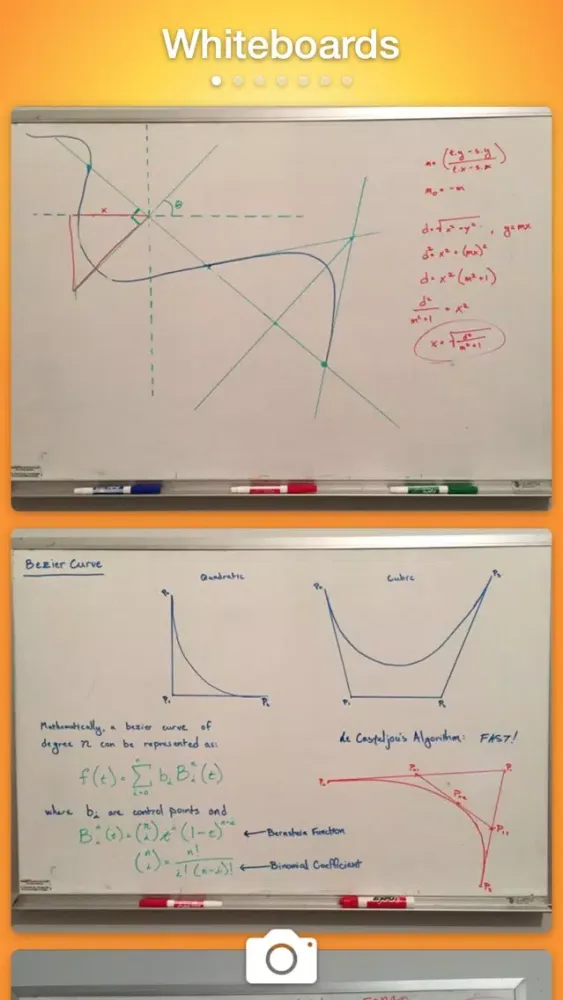 Whiteboards
θ
x
m = (e.y - s.y / e.x - s.x)
m₀ = -m
d = √x² + y² , y = mx
d² = x² + (mx)²
d² = x² (m² + 1)
d² / m² + 1 = x²
x = √d² / m² + 1
Bezier Curve
Quadratic
Cubic
P₀
P₁
P₂
P₀
P₁
P₂
P₃
Mathematically, a bezier curve of
degree n can be represented as:
f(t) = Σ i=0 n bᵢ Bᵢⁿ(t)
where bᵢ are control points and
Bᵢⁿ(t) = (n i) tⁱ (1-t)ⁿ⁻ⁱ ← Bernstein Function
(n i) = n! / i! (n-i)! ← Binomial Coefficient
de Casteljau's Algorithm: FAST!
P₀
P₀₁
P₁
P₀₁₂
P₁₂
P₂